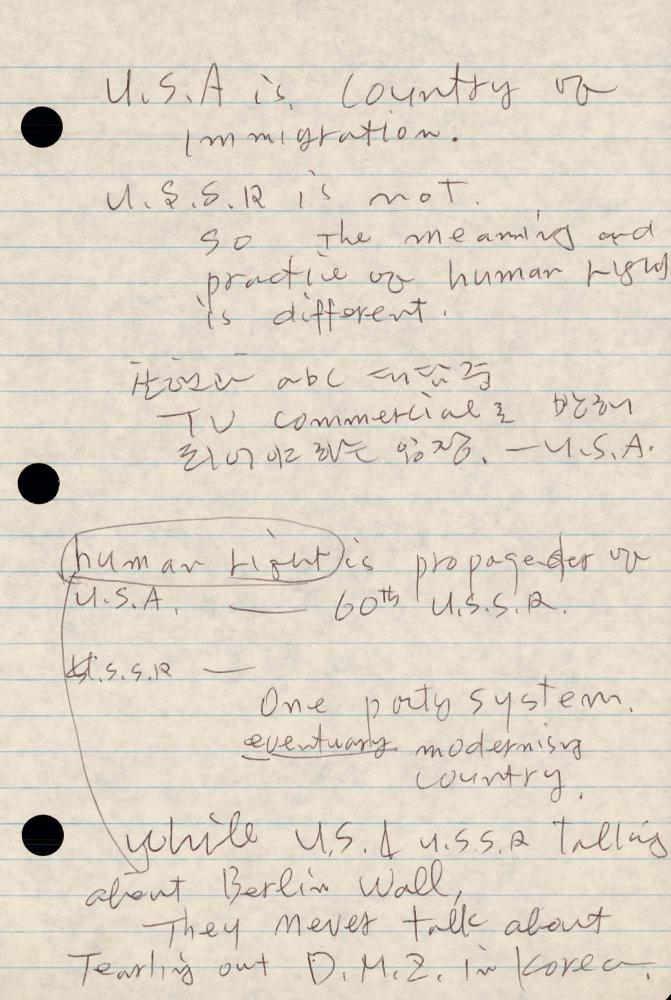 U.S.A is country of
immigration.
U.S.S.R is not.
so The meaning and
practice of human right
is different.
abc
TV commercial로 반해
U.S.A.
human right is propagander of
U.S.A. — 60th U.S.S.R.
U.S.S.R —
One party system.
eventuary modernising
country.
while U.S. & U.S.S.R talking
about Berlin Wall,
They never talk about
Tearling out D.M.Z. in Korea.